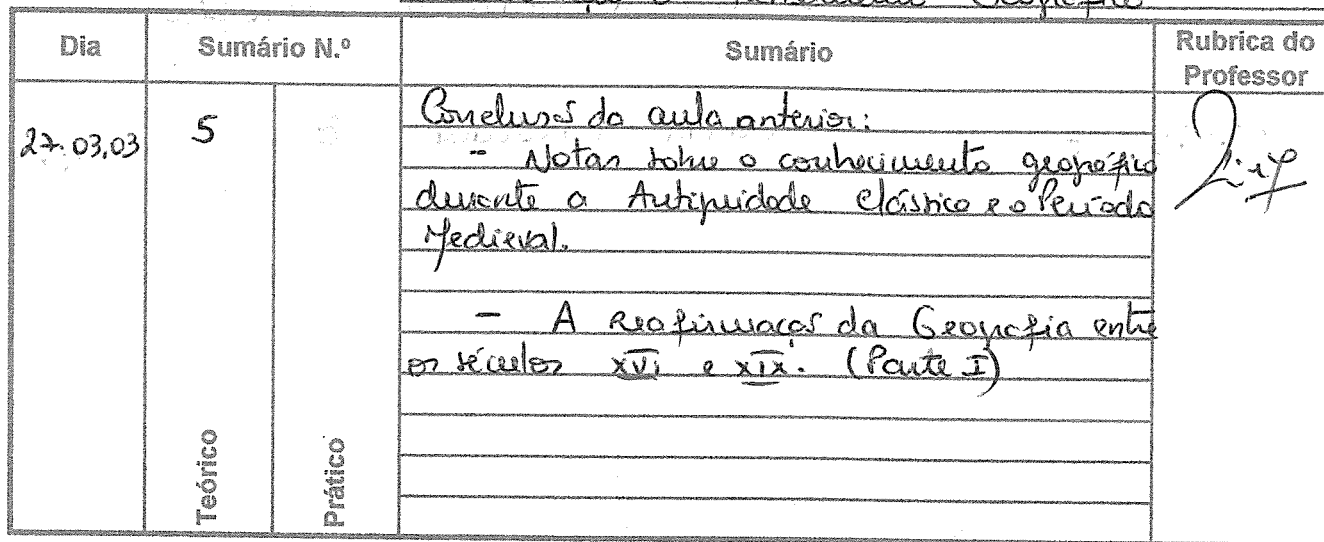 Dia
Sumário N.º
Sumário
Rubrica do
Professor
27.03.03
5
Conclusão da aula anterior:
- Notas sobre o conhecimento geográfico
durante a Antiguidade Clássica e o Período
Medieval.
- A reafirmação da Geografia entre
os séculos XVI e XIX. (Parte I)
Teórico
Prático